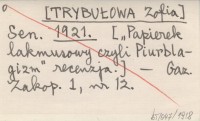 [TRYBUŁOWA Zofia]
Sen. 1921. ["Papierek
lakmusowy czyli Piurbla-
gizm" recenzja.] — Gaz.
Zakop. 1, nr 12.